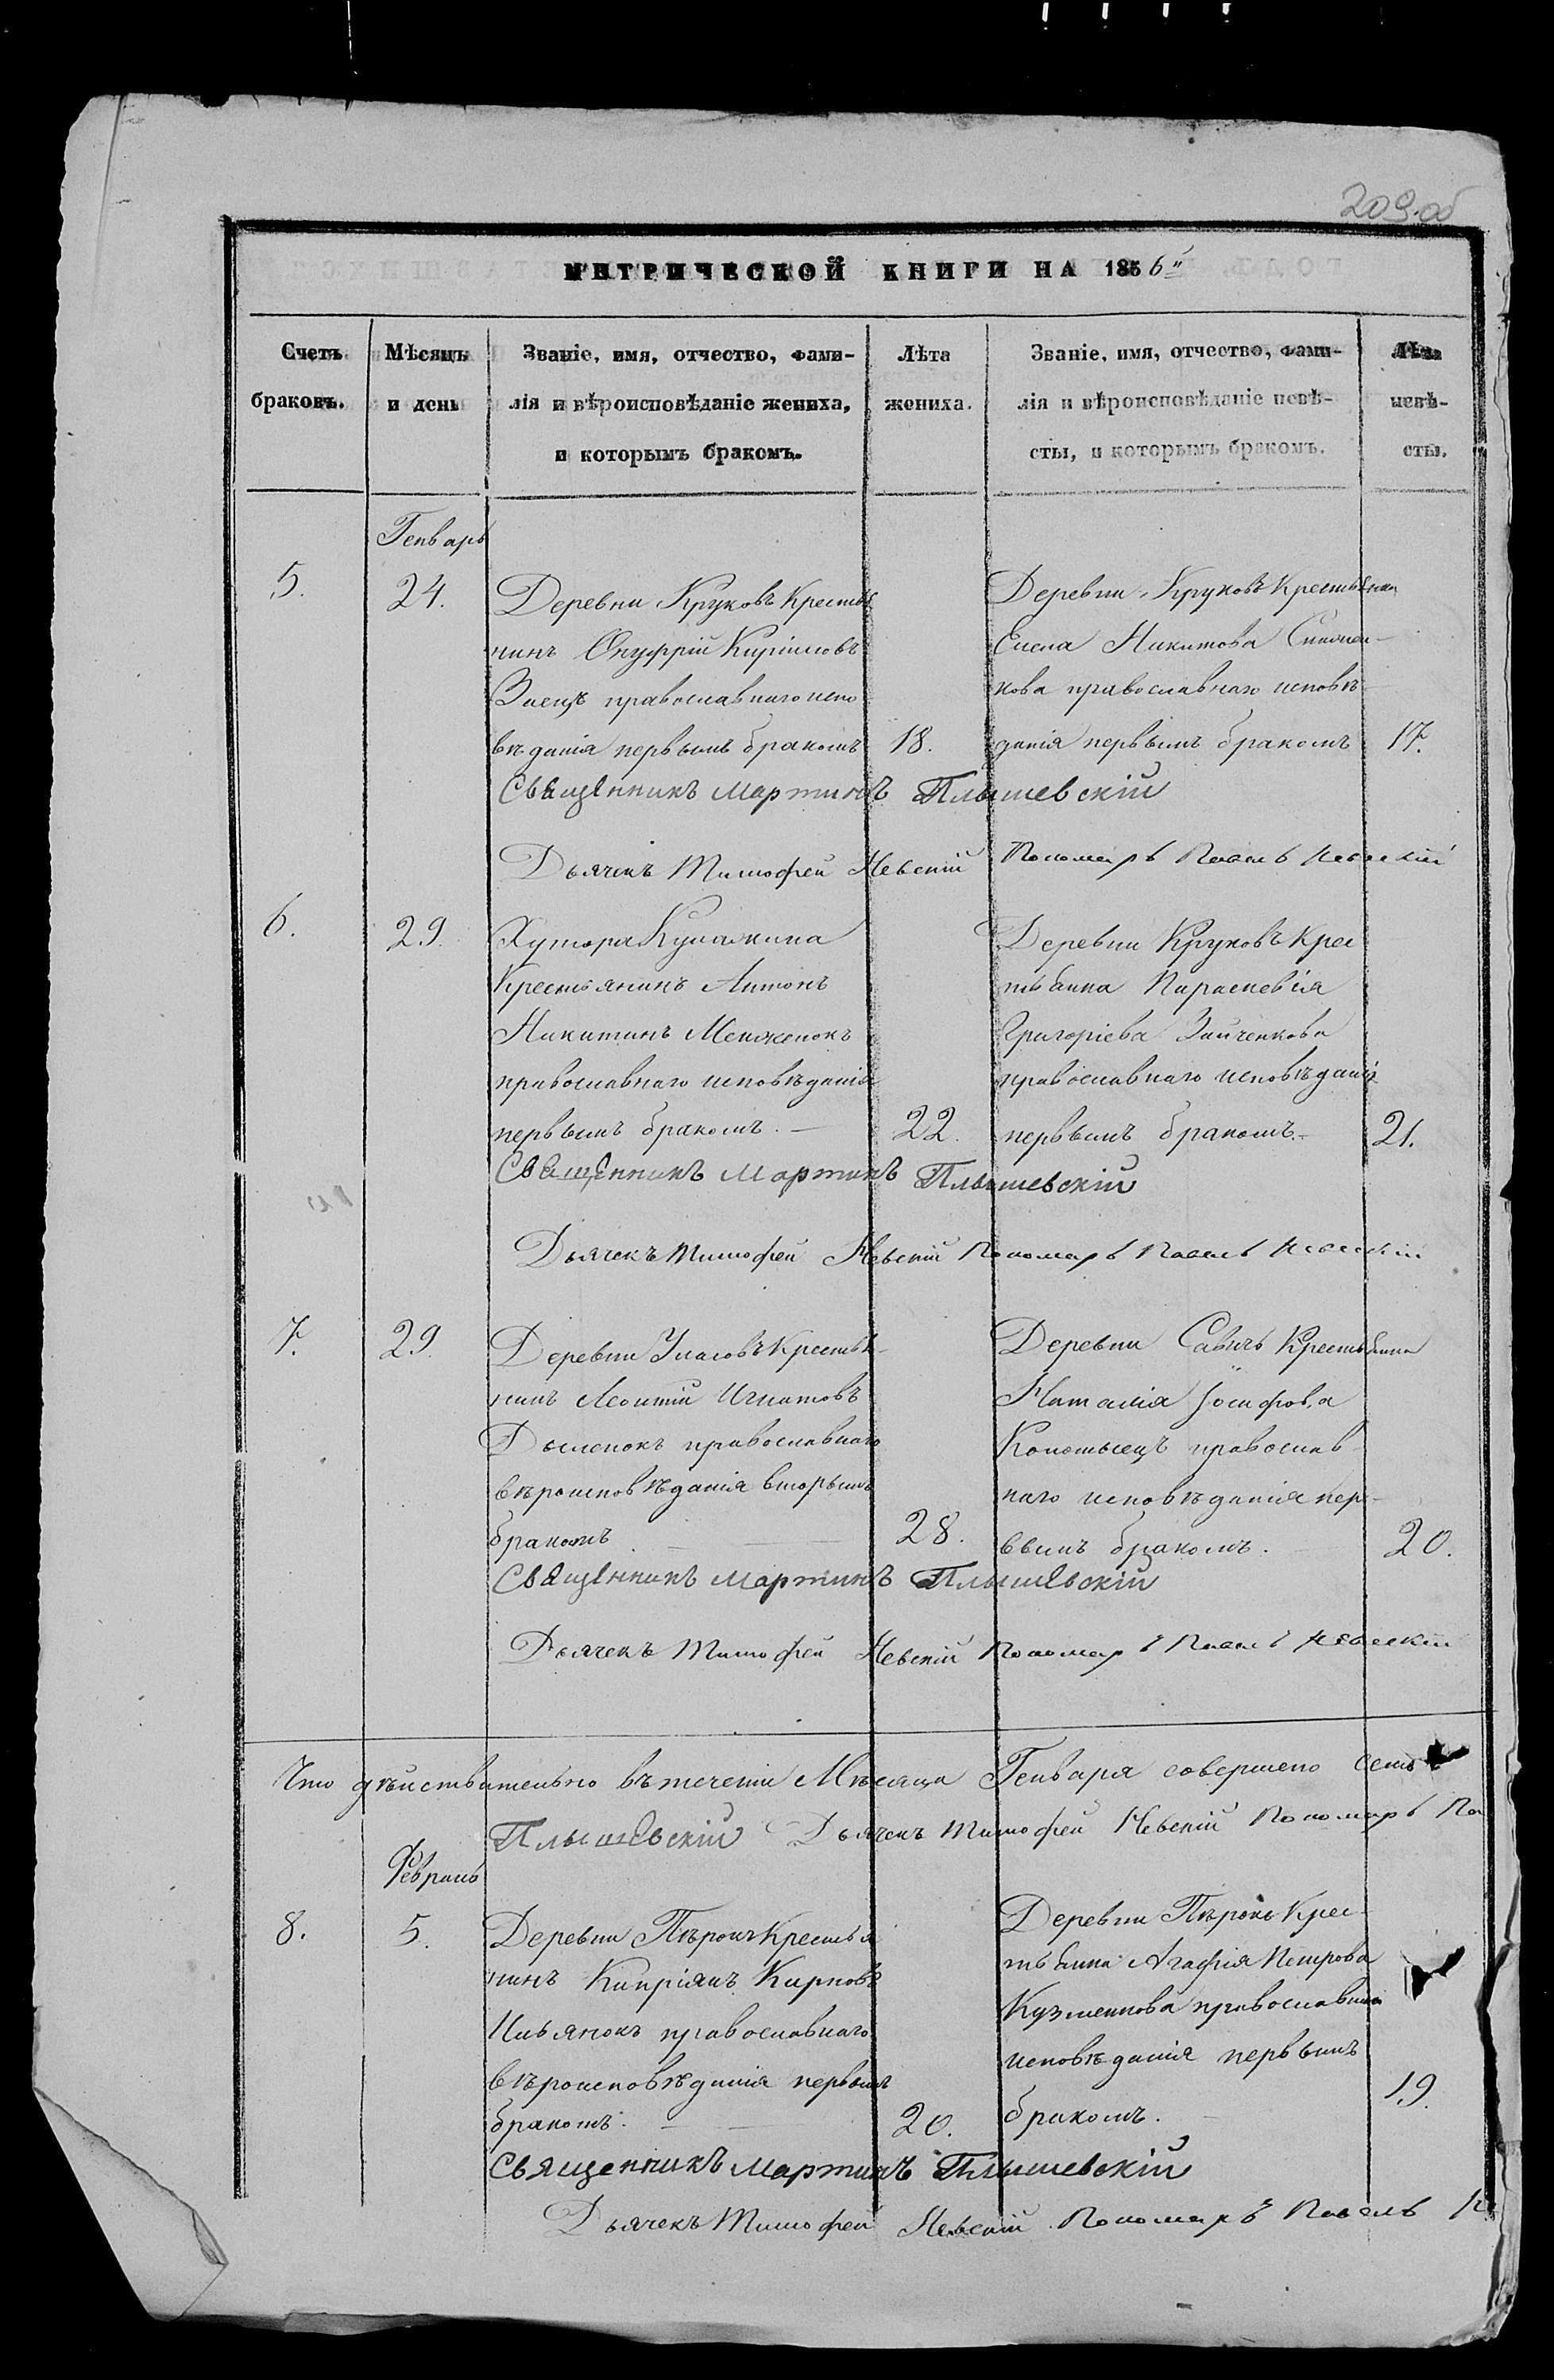 209 об
МЕТРИЧЕСКОЙ КНИГИ НА 1856й
Счетъ браковъ.
Мѣсяцъ и день
Званіе, имя, отчество, фами-
лія и вѣроисповѣданіе жениха,
и которымъ бракомъ.
Лѣта жениха.
Званіе, имя, отчество, фами-
лія и вѣроисповѣданіе невѣ-
сты, и которымъ бракомъ.
Лѣта невѣ-
сты.
Генварь
5.
24.
Деревни Круковъ Крестья
нинъ Онуфрій Киріловъ
Заецъ православнаго испо
вѣданія первымъ бракомъ
18.
Деревни Круковъ Крестьянка
Елена Никитова
кова православнаго исповѣ
данія первымъ бракомъ
17.
Священникъ Мартинъ Плышевскій
Дьячекъ Тимофей Невскій Пономарь Павелъ Невскій
6.
29.
Хутора
Крестьянинъ Антонъ
Никитинъ Менженокъ
православнаго исповѣданія
первымъ бракомъ. —
22.
Деревни Круковъ Крес
тьянка Параскевія
Григоріева Зайченкова
православнаго исповѣданія
первымъ бракомъ.
21.
Священникъ Мартинъ Плышевскій
Дьячекъ Тимофей Невскій Пономарь Павелъ Невскій
7.
29
Деревни Уласовъ Крестья-
нинъ Леонтій Игнатовъ
православнаго
вѣроисповѣданія вторымъ
бракомъ
28.
Деревни Савичъ Крестьянка
Наталія Іосифова
православ
наго исповѣданія пер-
вымъ бракомъ.
20.
Священникъ Мартинъ Плышевскій
Дьячекъ Тимофей Невскій Пономарь Павелъ Невскій
Что дѣйствительно въ теченіи Мѣсяца Генваря совершено семь
Плышевскій Дьячекъ Тимофей Невскій Пономарь Па
Февраль
8.
5.
Деревни Пѣрокъ Крестья
нинъ Кипріянъ Карповъ
Ильянокъ православнаго
вѣроисповѣданія первымъ
бракомъ.
20.
Деревни Пѣрокъ Крес-
тьянка Агафія Петрова
Кузменкова православнаго
исповѣданія первымъ
бракомъ.
19.
Священникъ Мартинъ Плышевскій
Дьячекъ Тимофей Невскій Пономарь Павелъ Н